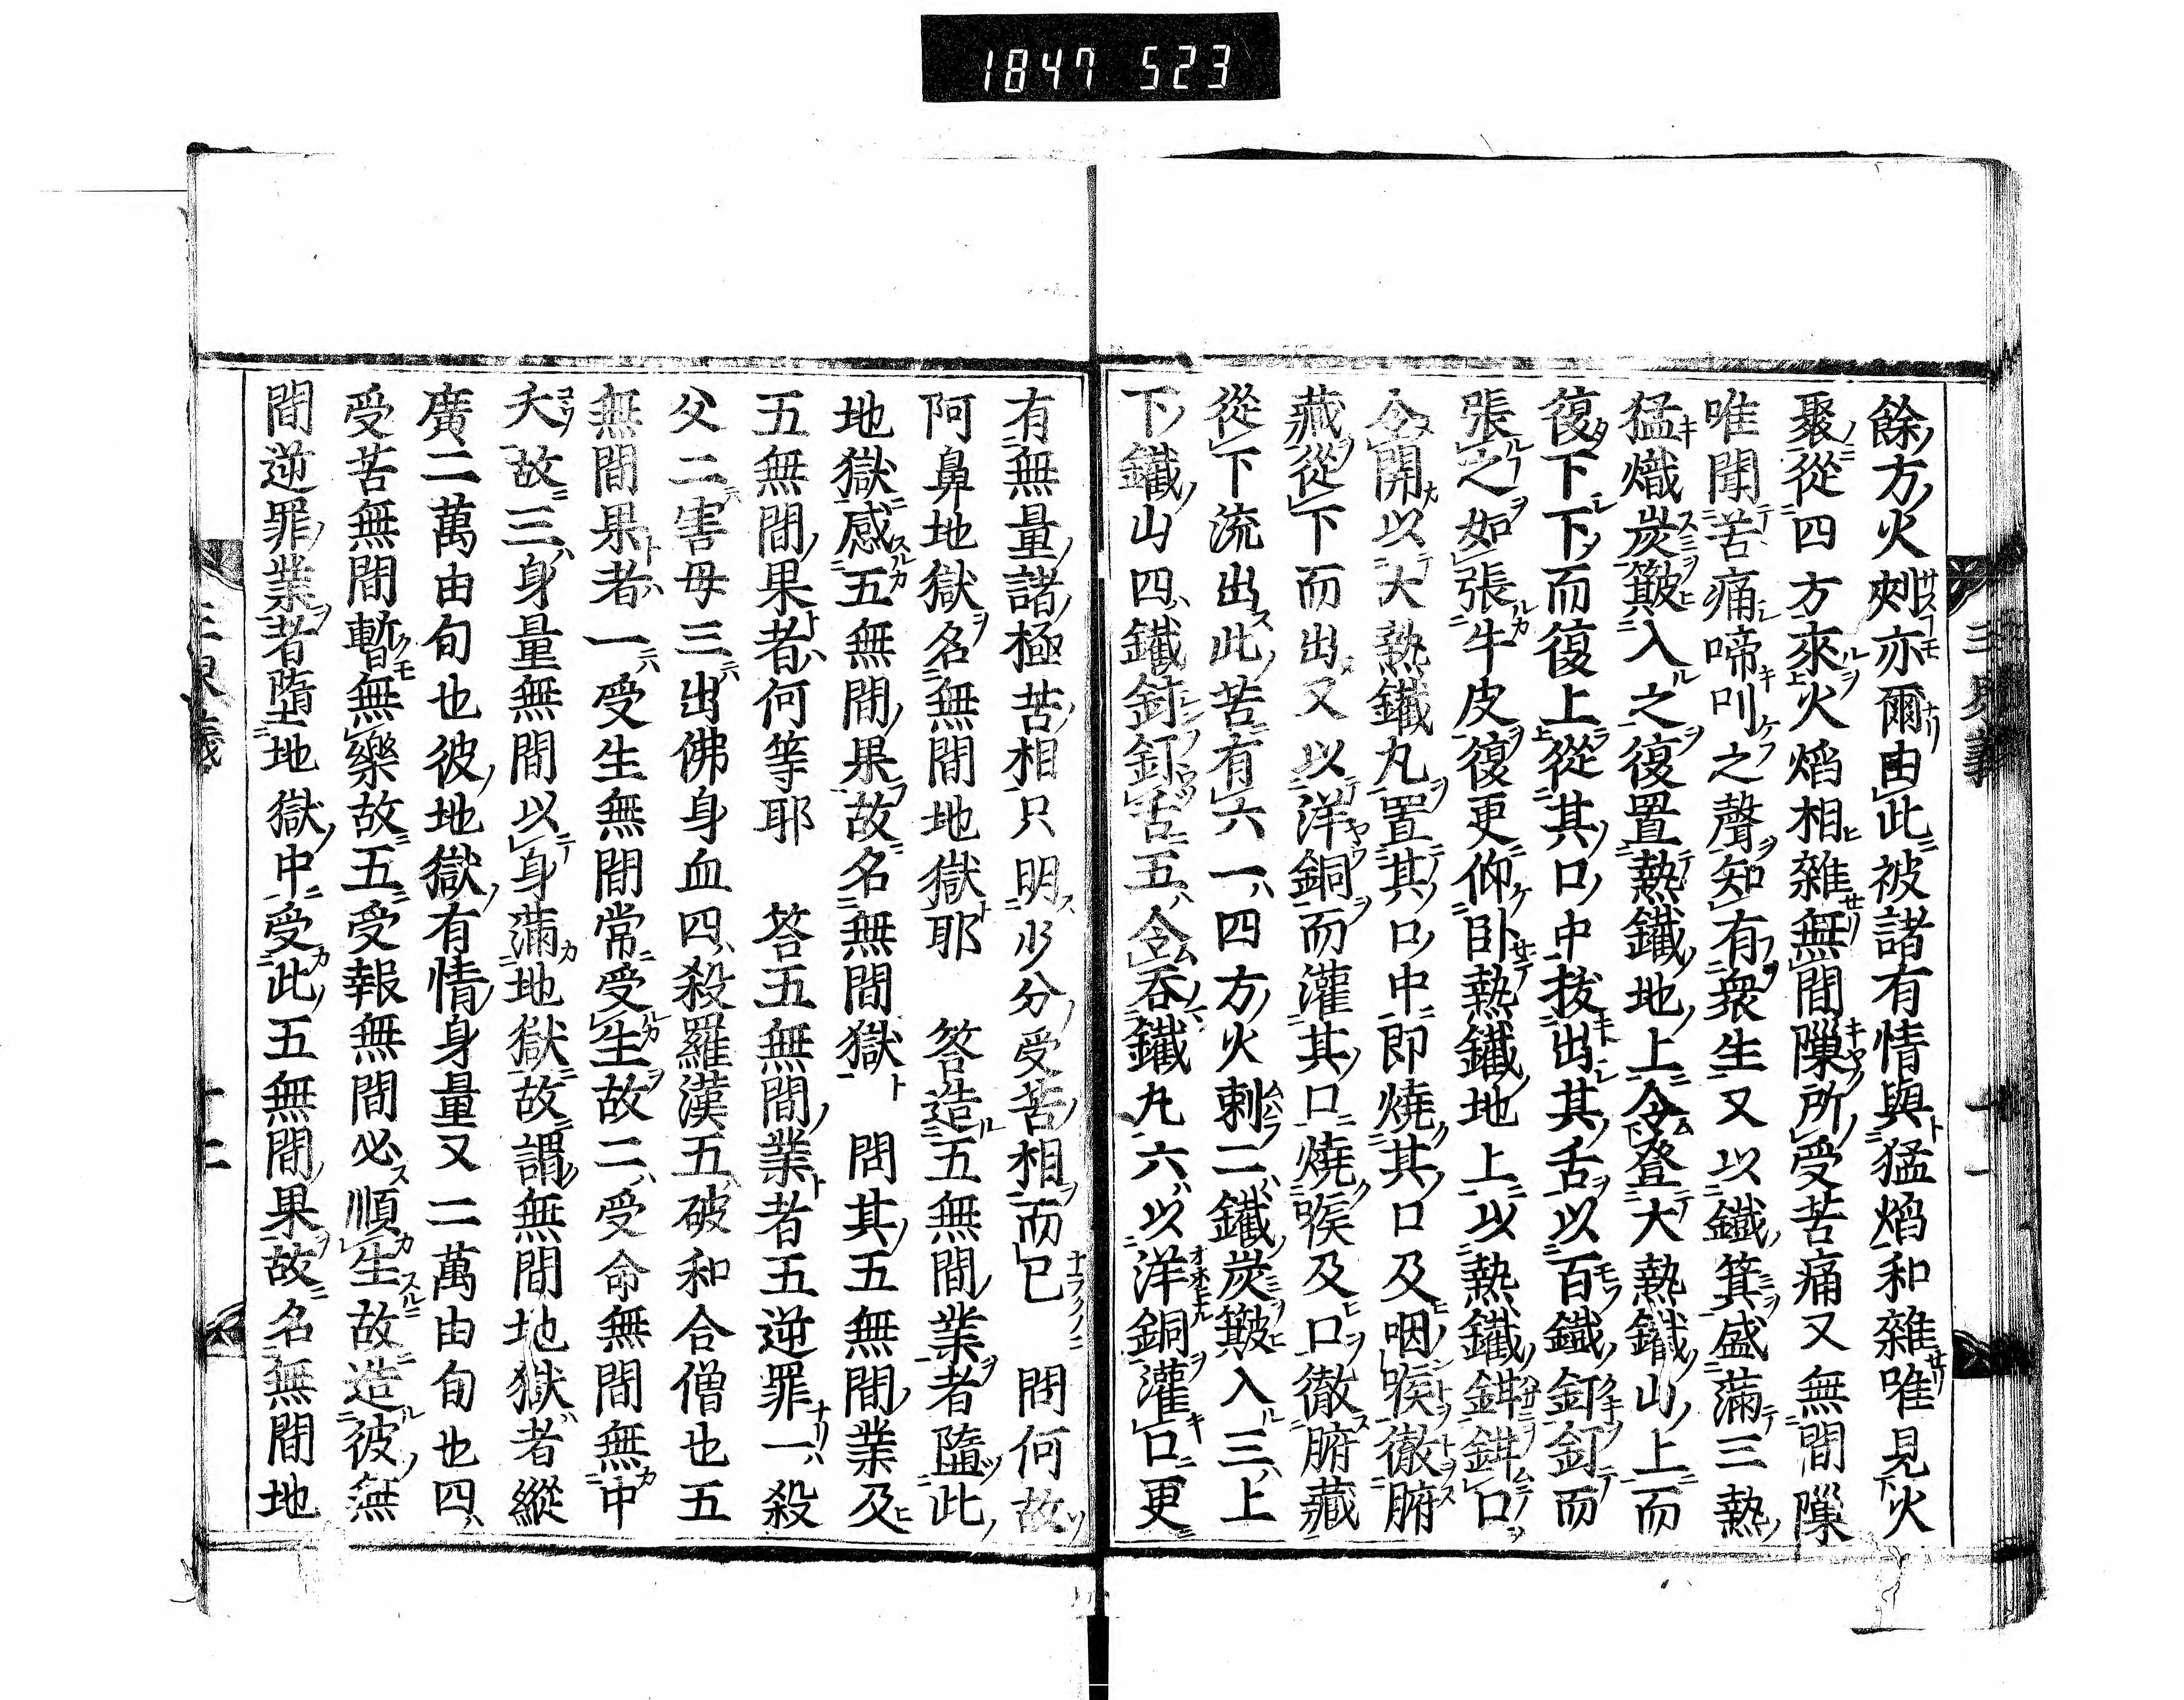 1847 523
餘方火刺亦爾由此被諸有情與猛焰和雜唯見火
聚從四方來火焰相雜無間隟所受苦痛又無間隟
唯聞苦痛啼叫之聲知有衆生又以鐵箕盛滿三熱
猛熾炭簸入之復置熱鐵地上令登大熱鐵山上而
復下下而復上從其口中拔出其舌以百鐵釘釘而
張之如張牛皮復更仰卧熱鐵地上以熱鐵鉗鉗口
令開以大熱鐵丸置其口中即燒其口及咽喉徹腑
藏從下而出又以洋銅而灌其口燒喉及口徹腑藏
從下流出此苦有六一四方火刺二鐵炭簸入三上
下鐵山四鐵釘釘舌五令呑鐵丸六以洋銅灌口更
有無量諸極苦相只明少分受苦相而已　問何故
阿鼻地獄名無間地獄耶　答造五無間業者墮此
地獄感五無間果故名無間獄　問其五無間業及
五無間果者何等耶　答五無間業者五逆罪一殺
父二害母三出佛身血四殺羅漢五破和合僧也五
無間果者一受生無間常受生故二受命無間無中
夭故三身量無間以身滿地獄故謂無間地獄者縱
廣二萬由旬也彼地獄有情身量又二萬由旬也四
受苦無間暫無樂故五受報無間必順生故造彼無
間逆罪業者墮地獄中受此五無間果故名無間地